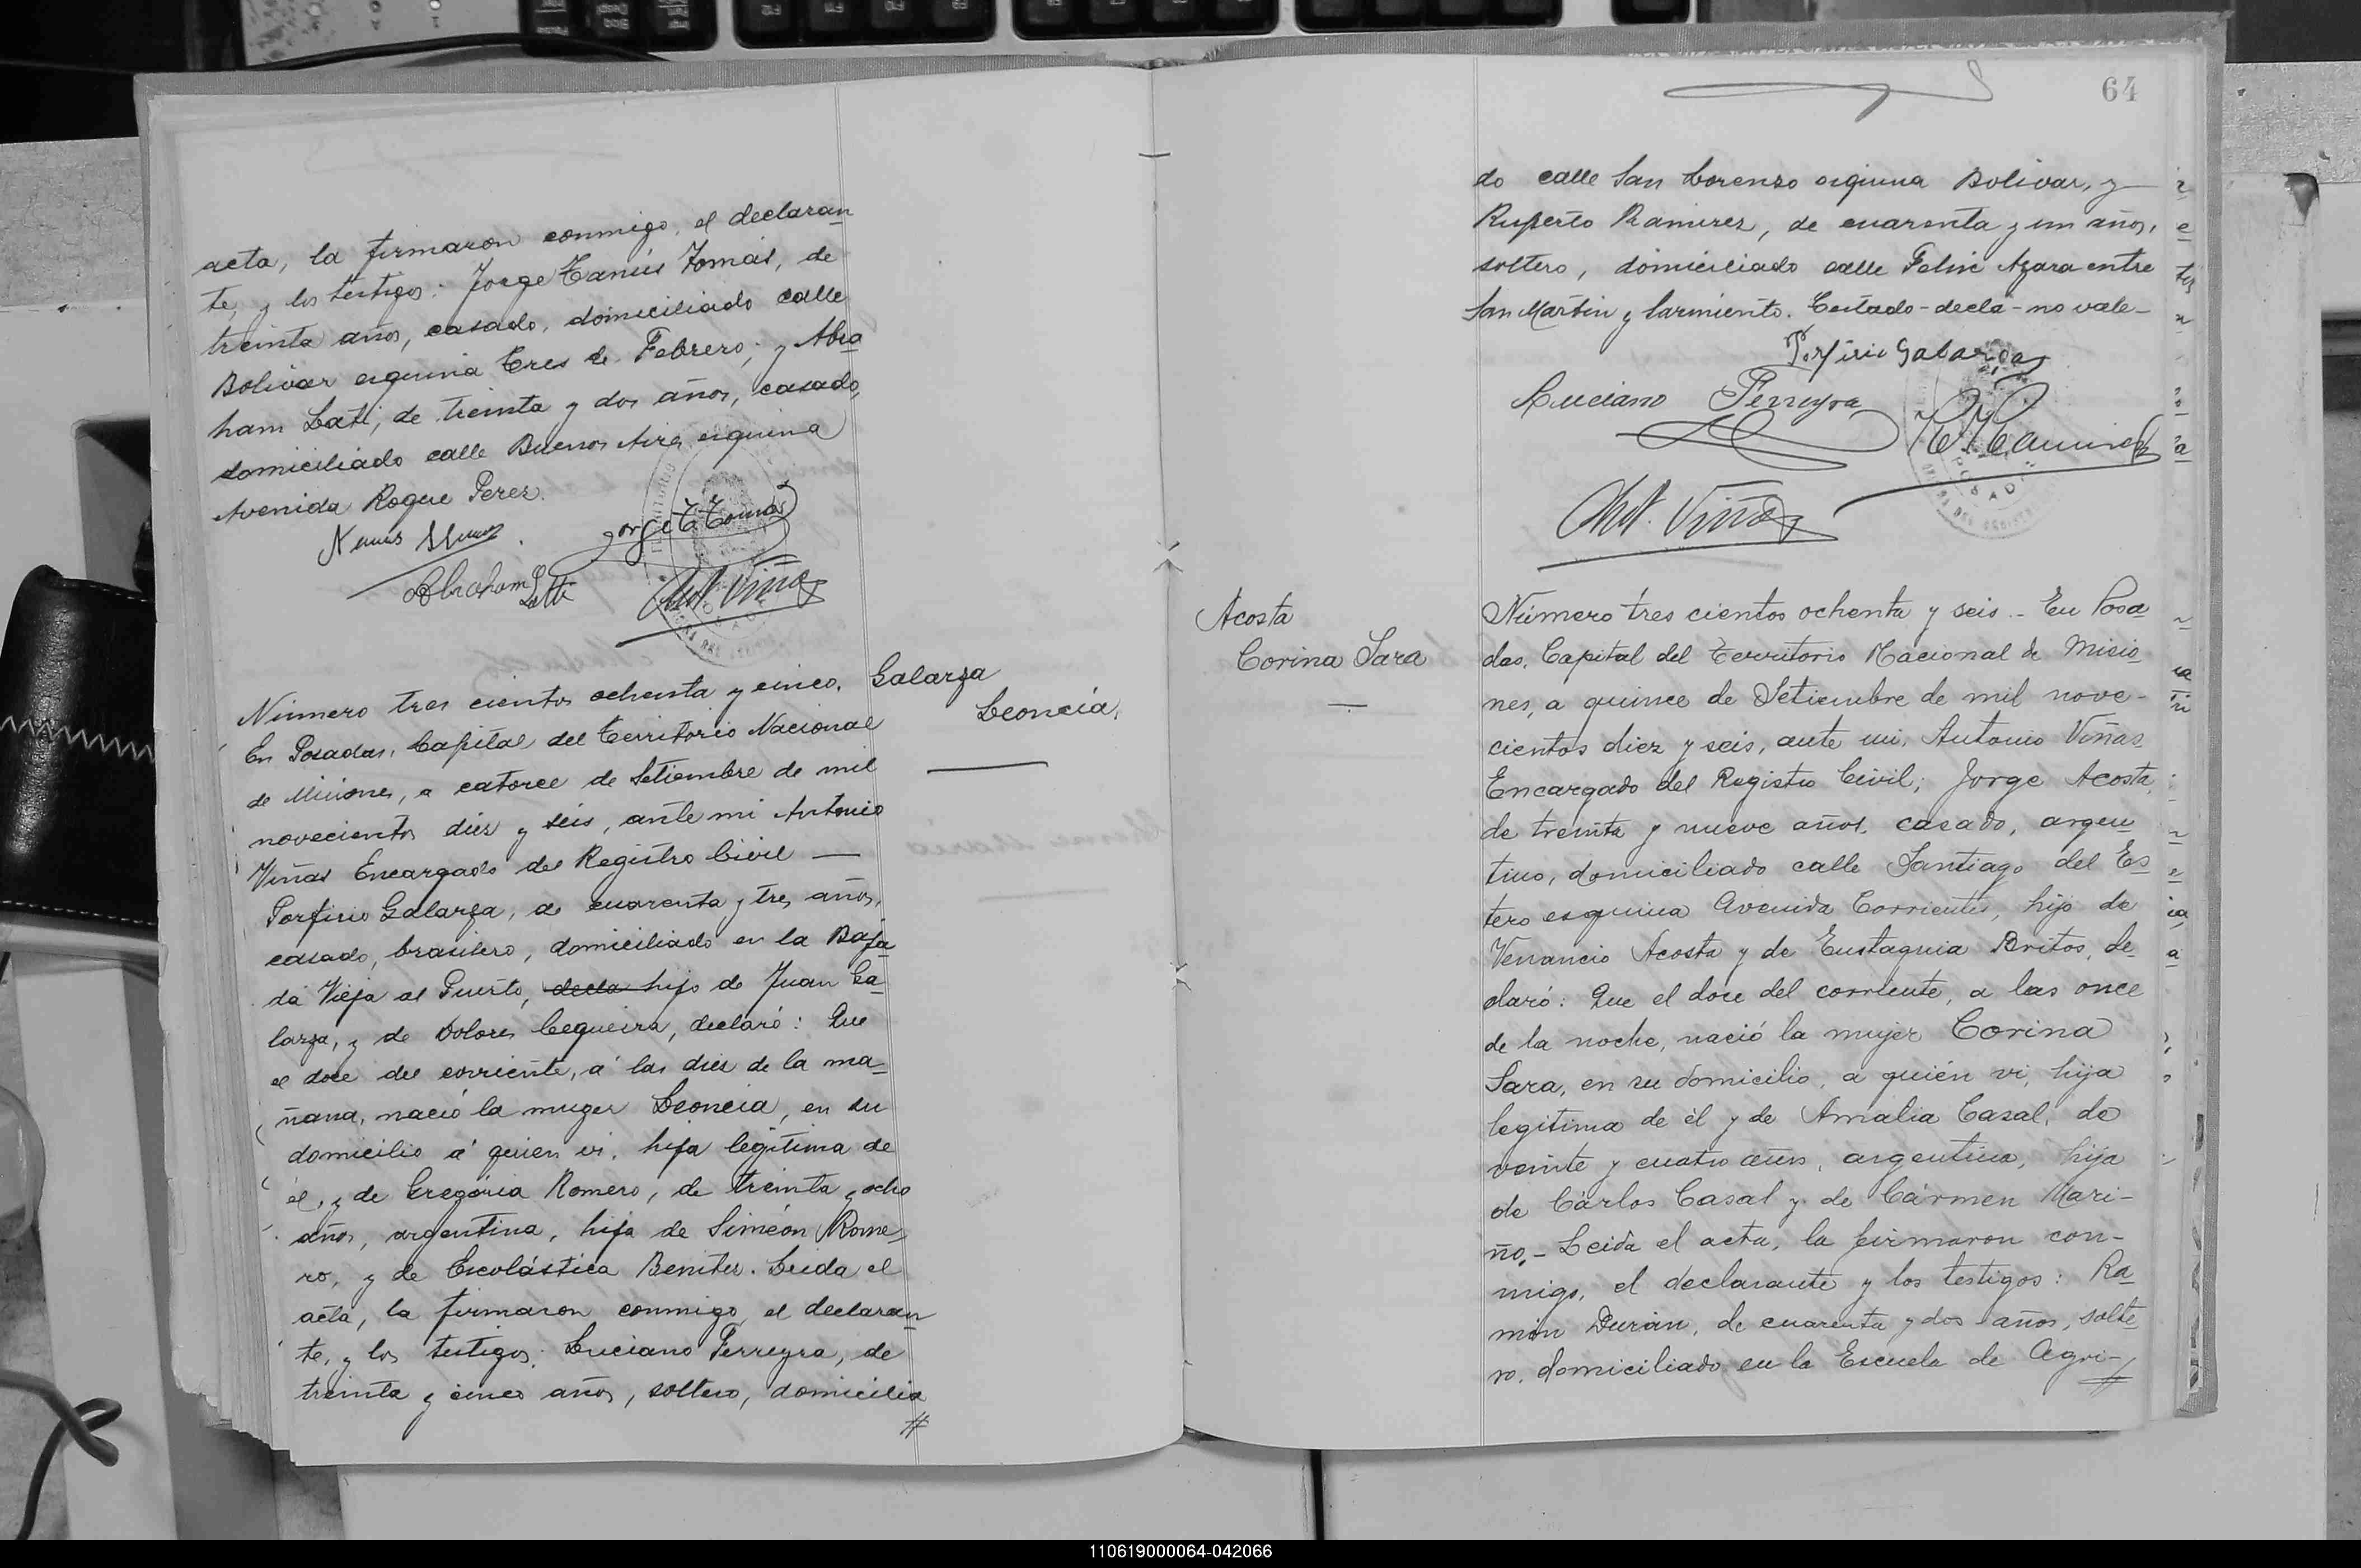 acta, la firmaron conmigo, el declaran
te, y los testigos: Jorge Tanús Tomás, de
treinta años, casado, domiciliado calle
Bolivar esquina Tres de Febrero; y Abra
ham Lati, de treinta y dos años, casado,
domiciliado calle Buenos Aires esquina
Avenida Roque Perez.
Jorge T. Tomás
Abraham Latti
Ant. Viñas
Número tres cientos ochenta y cinco.
En Posadas, Capital del Territorio Nacional
de Misiones, a catorce de Setiembre de mil
novecientos diez y seis, ante mi Antonio
Viñas Encargado del Registro Civil —
Porfirio Galarza, de cuarenta y tres años,
casado, brasilero, domiciliado en la Baja
da Vieja al Puerto, decla hijo de Juan Ga
larza, y de Dolores Cequeira, declaró: Que
el doce del corriente, á las diez de la ma
ñana, nació la muger Leoncia, en su
domicilio á quien vi, hija legítima de
él, y de Gregória Romero, de treinta y ocho
años, argentina, hija de Simeón Rome
ro, y de Escolástica Benitez. Leida el
acta, la firmaron conmigo, el declaran
te, y los testigos: Luciano Ferreyra, de
treinta y cinco años, soltero, domicilia
#
Galarza
Leoncia.
64
do calle San Lorenzo esquina Bolivar, y
Ruperto Ramirez, de cuarenta y un años,
soltero, domiciliado calle Felix Azara entre
San Martin y Sarmiento. Testado-decla-no vale-
Porfirio Galarza
Luciano Ferreyra
R. Ramirez
Ant. Viñas
Acosta
Corina Sara
Número tres cientos ochenta y seis.- En Posa
das, Capital del Territorio Nacional de Misio
nes, a quince de Setiembre de mil nove-
cientos diez y seis, ante mi, Antonio Viñas
Encargado del Registro Civil; Jorge Acosta,
de treinta y nueve años, casado, argen
tino, domiciliado calle Santiago del Es
tero esquina Avenida Corrientes, hijo de
Venancio Acosta y de Eustaquia Britos, de
claró: Que el doce del corriente, a las once
de la noche, nació la mujer Corina
Sara, en su domicilio, a quién vi, hija
legítima de él y de Amalia Casal, de
veinte y cuatro años, argentina, hija
de Cárlos Casal y de Cármen Mari-
ño.- Leida el acta, la firmaron con-
migo, el declarante y los testigos: Ra
món Durán, de cuarenta y dos años, solte
ro, domiciliado en la Escuela de Agri-
110619000064-042066